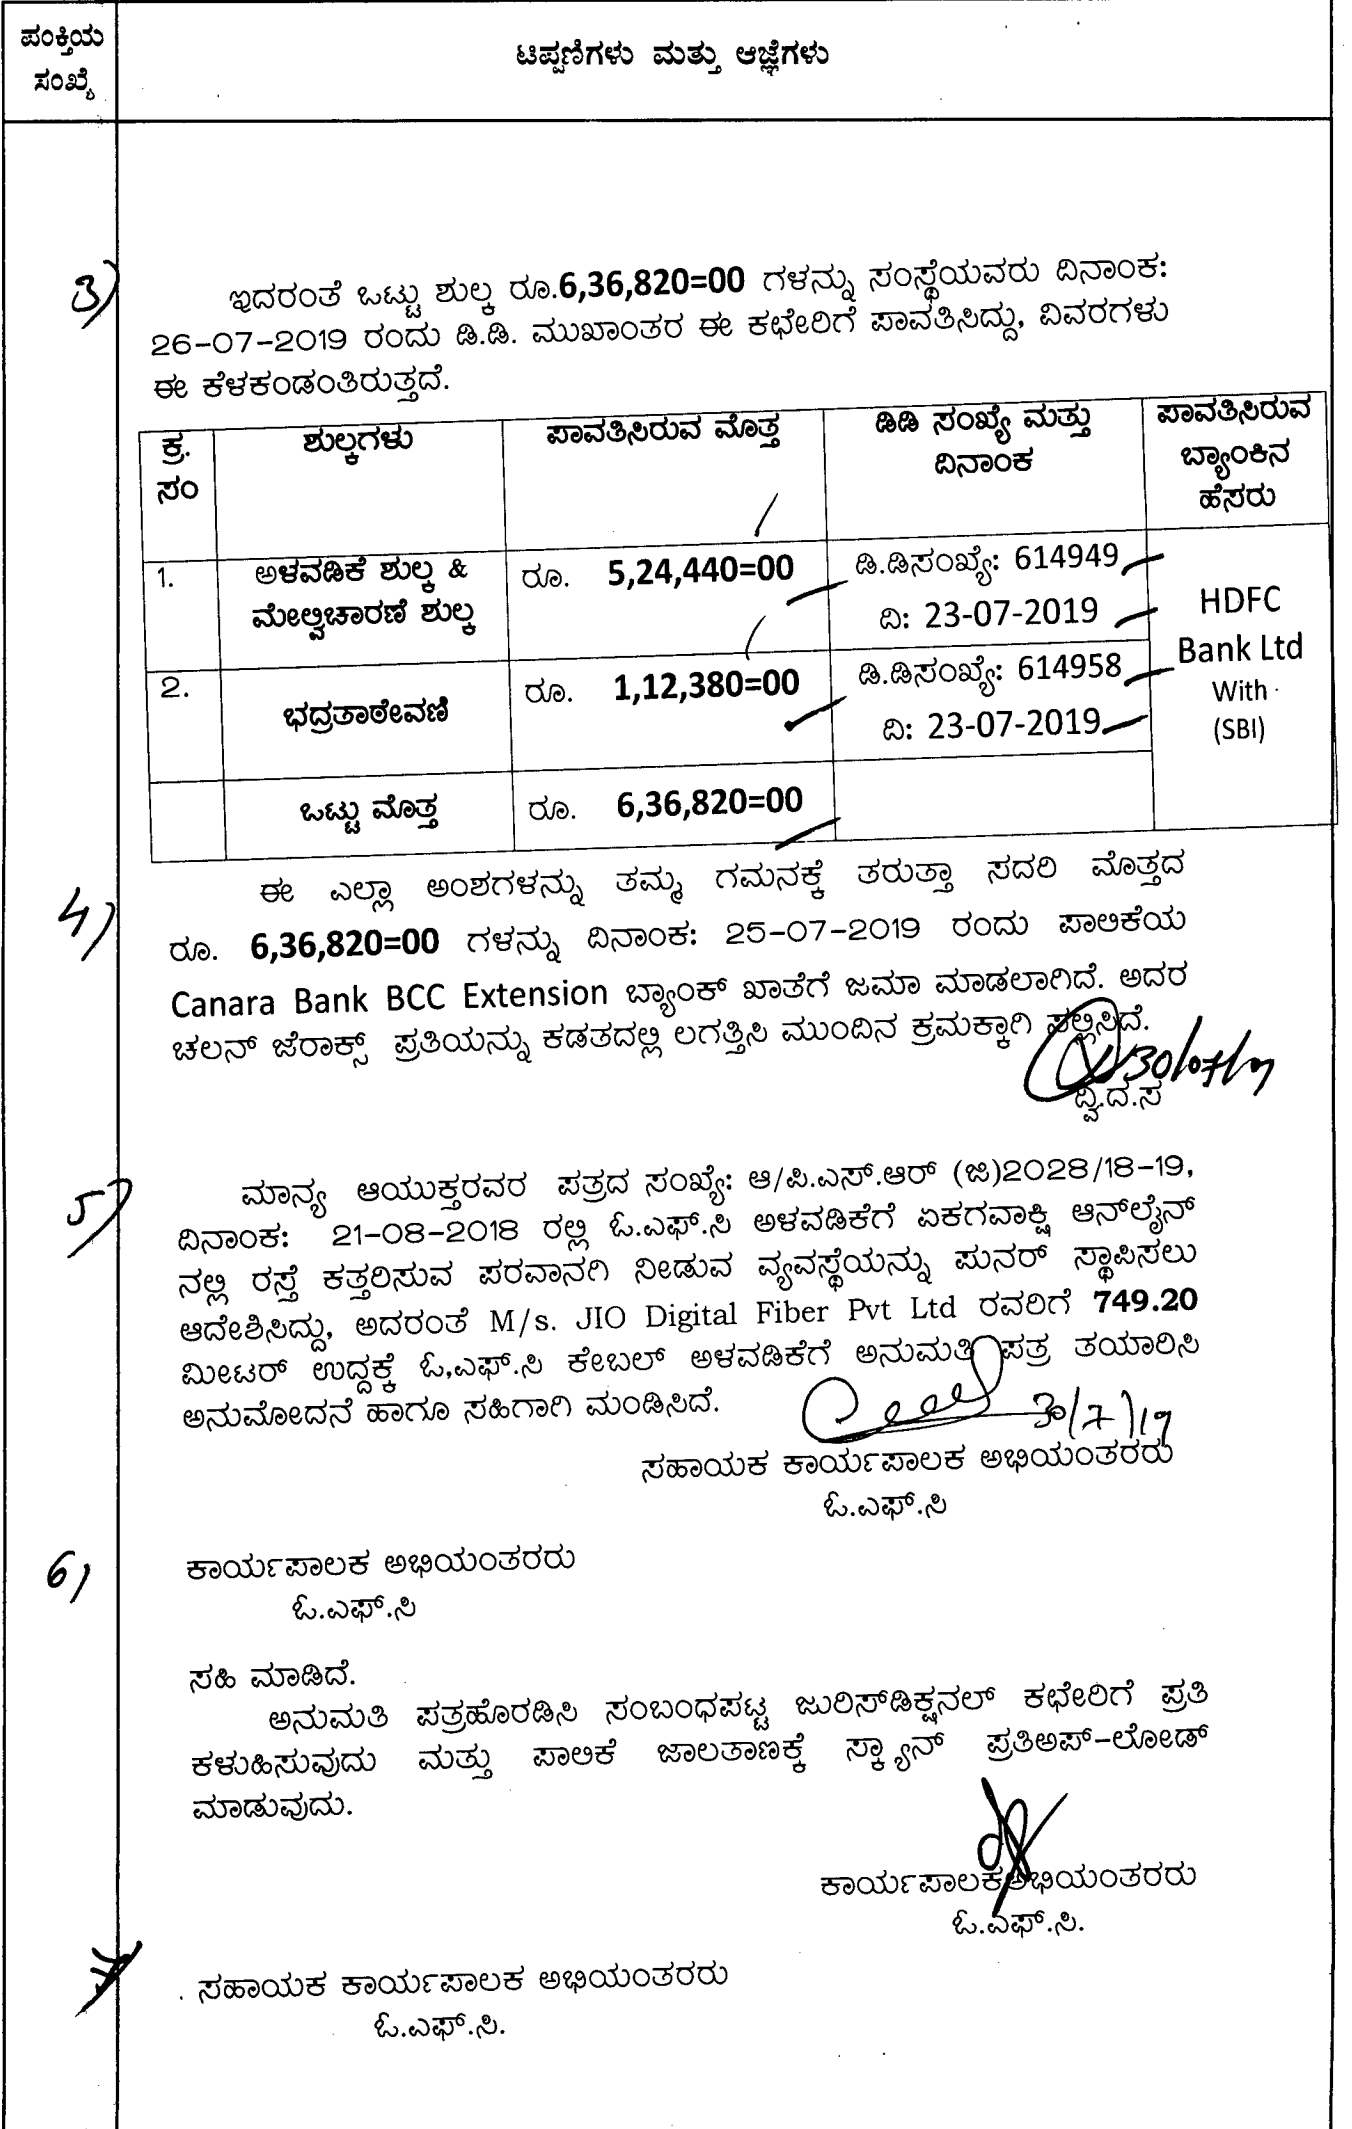 ಪಂಕ್ತಿಯ
ಸಂಖ್ಯೆ
ಟಿಪ್ಪಣಿಗಳು ಮತ್ತು ಆಜ್ಞೆಗಳು
3)
ಇದರಂತೆ ಒಟ್ಟು ಶುಲ್ಕ ರೂ.6,36,820=00 ಗಳನ್ನು ಸಂಸ್ಥೆಯವರು ದಿನಾಂಕ:
26-07-2019 ರಂದು ಡಿ.ಡಿ. ಮುಖಾಂತರ ಈ ಕಛೇರಿಗೆ ಪಾವತಿಸಿದ್ದು, ವಿವರಗಳು
ಈ ಕೆಳಕಂಡಂತಿರುತ್ತದೆ.
ಕ್ರ.
ಸಂ
ಶುಲ್ಕಗಳು
ಪಾವತಿಸಿರುವ ಮೊತ್ತ
ಡಿಡಿ ಸಂಖ್ಯೆ ಮತ್ತು
ದಿನಾಂಕ
ಪಾವತಿಸಿರುವ
ಬ್ಯಾಂಕಿನ
ಹೆಸರು
1.
ಅಳವಡಿಕೆ ಶುಲ್ಕ &
ಮೇಲ್ವಿಚಾರಣೆ ಶುಲ್ಕ
ರೂ. 5,24,440=00
ಡಿ.ಡಿಸಂಖ್ಯೆ: 614949
ದಿ: 23-07-2019
HDFC
Bank Ltd
With
(SBI)
2.
ಭದ್ರತಾಠೇವಣಿ
ರೂ. 1,12,380=00
ಡಿ.ಡಿಸಂಖ್ಯೆ: 614958
ದಿ: 23-07-2019
ಒಟ್ಟು ಮೊತ್ತ
ರೂ. 6,36,820=00
4)
ಈ ಎಲ್ಲಾ ಅಂಶಗಳನ್ನು ತಮ್ಮ ಗಮನಕ್ಕೆ ತರುತ್ತಾ ಸದರಿ ಮೊತ್ತದ
ರೂ. 6,36,820=00 ಗಳನ್ನು ದಿನಾಂಕ: 25-07-2019 ರಂದು ಪಾಲಿಕೆಯ
Canara Bank BCC Extension ಬ್ಯಾಂಕ್ ಖಾತೆಗೆ ಜಮಾ ಮಾಡಲಾಗಿದೆ. ಅದರ
ಚಲನ್ ಜೆರಾಕ್ಸ್ ಪ್ರತಿಯನ್ನು ಕಡತದಲ್ಲಿ ಲಗತ್ತಿಸಿ ಮುಂದಿನ ಕ್ರಮಕ್ಕಾಗಿ ಸಲ್ಲಿಸಿದೆ.
30/07/19
ದ್ವಿ.ದ.ಸ
5)
ಮಾನ್ಯ ಆಯುಕ್ತರವರ ಪತ್ರದ ಸಂಖ್ಯೆ: ಆ/ಪಿ.ಎಸ್.ಆರ್ (ಜಿ)2028/18-19,
ದಿನಾಂಕ: 21-08-2018 ರಲ್ಲಿ ಓ.ಎಫ್.ಸಿ ಅಳವಡಿಕೆಗೆ ಏಕಗವಾಕ್ಷಿ ಆನ್‌ಲೈನ್
ನಲ್ಲಿ ರಸ್ತೆ ಕತ್ತರಿಸುವ ಪರವಾನಗಿ ನೀಡುವ ವ್ಯವಸ್ಥೆಯನ್ನು ಪುನರ್ ಸ್ಥಾಪಿಸಲು
ಆದೇಶಿಸಿದ್ದು, ಅದರಂತೆ M/s. JIO Digital Fiber Pvt Ltd ರವರಿಗೆ 749.20
ಮೀಟರ್ ಉದ್ದಕ್ಕೆ ಓ,ಎಫ್.ಸಿ ಕೇಬಲ್ ಅಳವಡಿಕೆಗೆ ಅನುಮತಿ ಪತ್ರ ತಯಾರಿಸಿ
ಅನುಮೋದನೆ ಹಾಗೂ ಸಹಿಗಾಗಿ ಮಂಡಿಸಿದೆ.
30/7/19
ಸಹಾಯಕ ಕಾರ್ಯಪಾಲಕ ಅಭಿಯಂತರರು
ಓ.ಎಫ್.ಸಿ
6)
ಕಾರ್ಯಪಾಲಕ ಅಭಿಯಂತರರು
ಓ.ಎಫ್.ಸಿ
ಸಹಿ ಮಾಡಿದೆ.
ಅನುಮತಿ ಪತ್ರಹೊರಡಿಸಿ ಸಂಬಂಧಪಟ್ಟ ಜುರಿಸ್‌ಡಿಕ್ಷನಲ್ ಕಛೇರಿಗೆ ಪ್ರತಿ
ಕಳುಹಿಸುವುದು ಮತ್ತು ಪಾಲಿಕೆ ಜಾಲತಾಣಕ್ಕೆ ಸ್ಕ್ಯಾನ್ ಪ್ರತಿಅಪ್-ಲೋಡ್
ಮಾಡುವುದು.
ಕಾರ್ಯಪಾಲಕಅಭಿಯಂತರರು
ಓ.ಎಫ್.ಸಿ.
ಸಹಾಯಕ ಕಾರ್ಯಪಾಲಕ ಅಭಿಯಂತರರು
ಓ.ಎಫ್.ಸಿ.